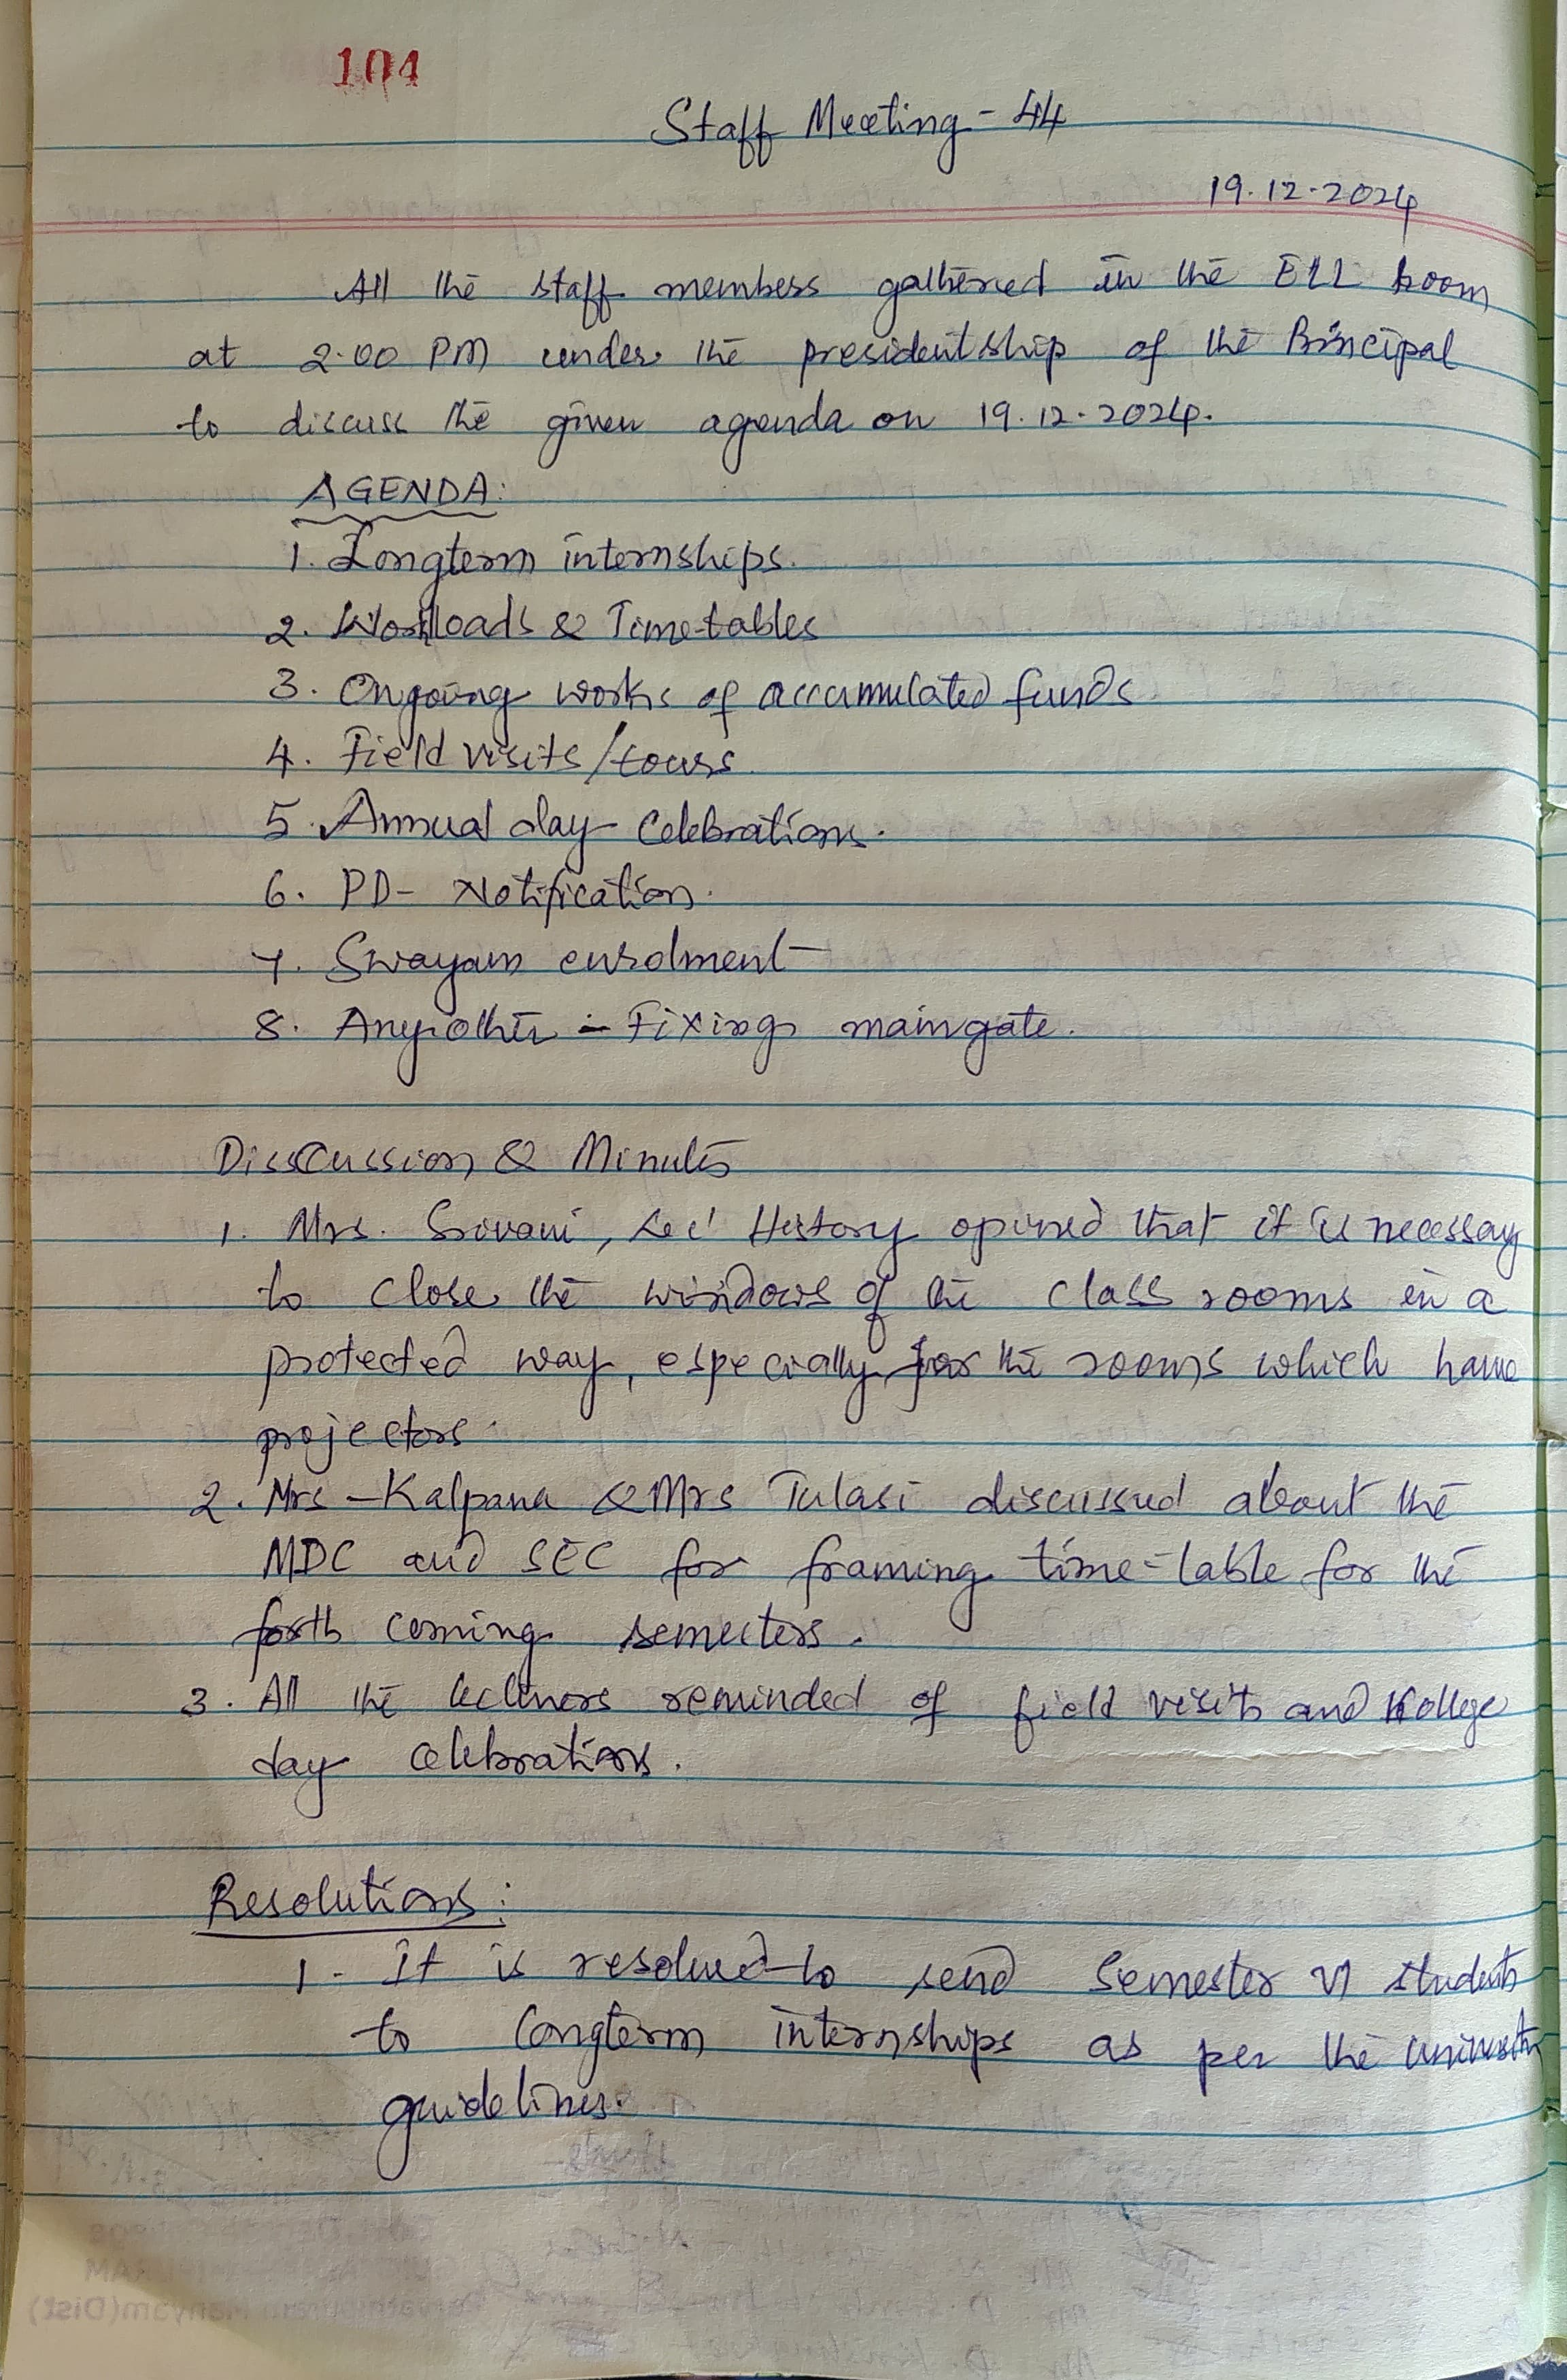 104
Staff Meeting - 44
19.12.2024
All the staff members gathered in the ELL room
at 2.00 PM under the presidentship of the Principal
to discuss the given agenda on 19.12.2024.
AGENDA:
1. Longterm internships.
2. Workloads & Time-tables
3. Ongoing works of accumulated funds
4. Field visits/tours.
5. Annual day celebrations.
6. PD- Notification.
7. Swayam enrolment
8. Any other - Fixing maingate.
Disscussion & Minutes
1. Mrs. Sravani, Lec' History opined that it is necessay
to close the windows of the class rooms in a
protected way, especially for the rooms which have
projectors.
2. Mrs - Kalpana & Mrs Tulasi discussed about the
MDC and SEC for framing time-table for the
forth coming semesters.
3. All the lecturers reminded of field visits and College
day celebrations.
Resolutions:
1. It is resolved to send Semester VI students
to longterm internships as per the
guidelines.